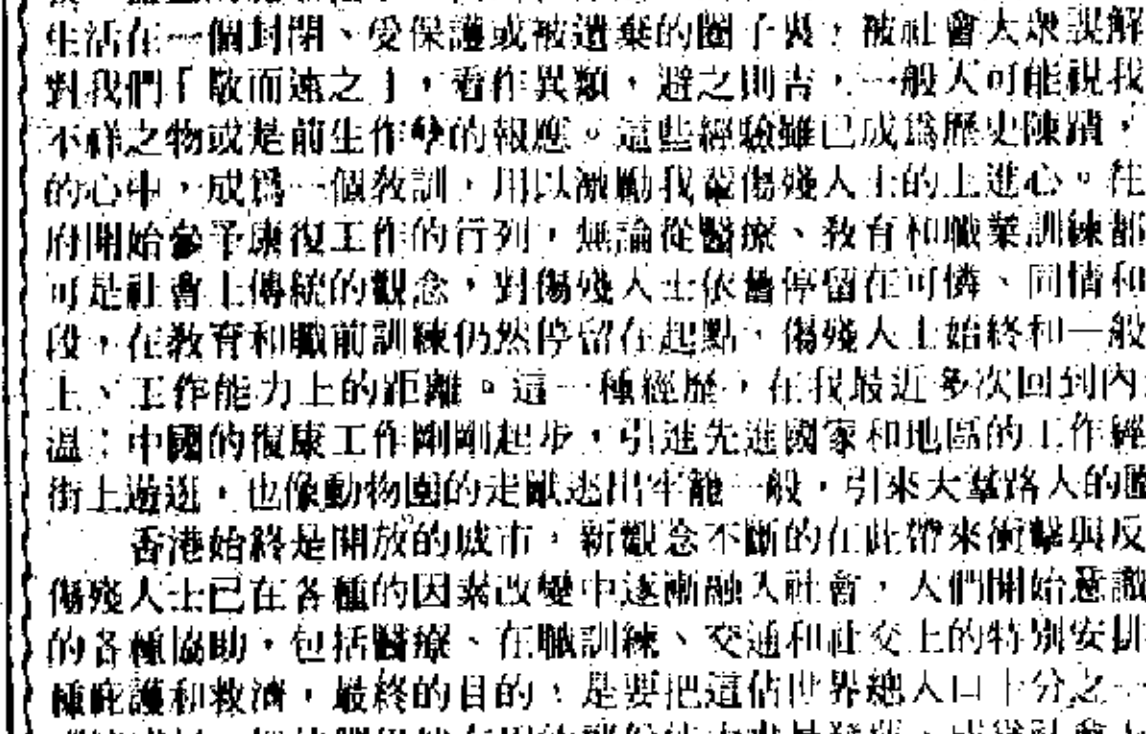 生活在一個封閉、受保護或被遺棄的圈子裏，被社會大衆誤解
對我們「敬而遠之」，看作異類，避之則吉，一般人可能視我
不祥之物或是前生作孽的報應。這些經驗雖已成爲歷史陳蹟，
的心中，成爲一個敎訓，用以激勵我輩傷殘人士的上進心。往
府開始參予康復工作的行列，無論從醫療、敎育和職業訓練都
可是社會上傳統的觀念，對傷殘人士依舊停留在可憐、同情和
段，在敎育和職前訓練仍然停留在起點，傷殘人士始終和一般
上、工作能力上的距離。這一種經歷，在我最近多次回到內
溫：中國的復康工作剛剛起步，引進先進國家和地區的工作經
街上遊逛，也像動物園的走獸逃出牢籠一般，引來大羣路人的
香港始終是開放的城市，新觀念不斷的在此帶來衝擊與反
傷殘人士已在各種的因素改變中逐漸融入社會，人們開始意識
的各種協助，包括醫療、在職訓練、交通和社交上的特別安排
種庇護和救濟，最終的目的，是要把這佔世界總人口十分之一